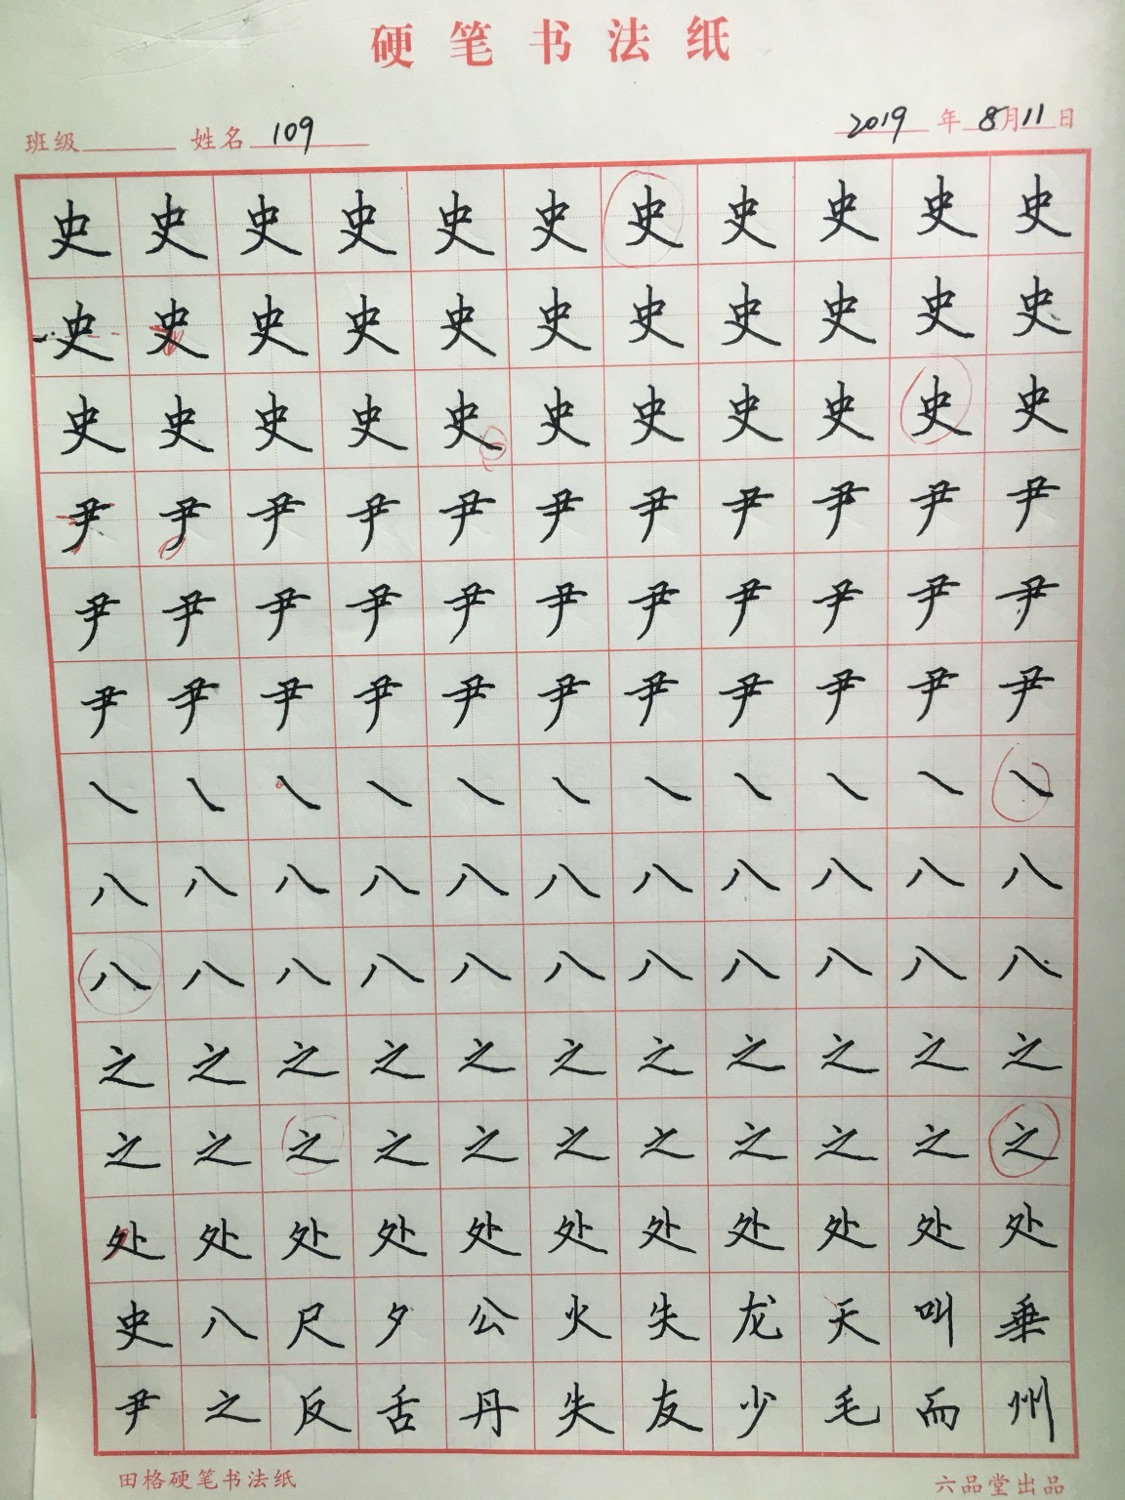 硬笔书法纸
班级 姓名 109 2019年8月11日
史史史史史史史史史史史
史史史史史史史史史史史
史史史史史史史史史史史
尹尹尹尹尹尹尹尹尹尹尹
尹尹尹尹尹尹尹尹尹尹尹
尹尹尹尹尹尹尹尹尹尹尹
㇏㇏㇏㇏㇏㇏㇏㇏㇏㇏㇏
八八八八八八八八八八八
八八八八八八八八八八八
之之之之之之之之之之之
之之之之之之之之之之之
处处处处处处处处处处处
史八尺夕公火失龙天叫垂
尹之反舌丹失友少毛而州
田格硬笔书法纸 六品堂出品